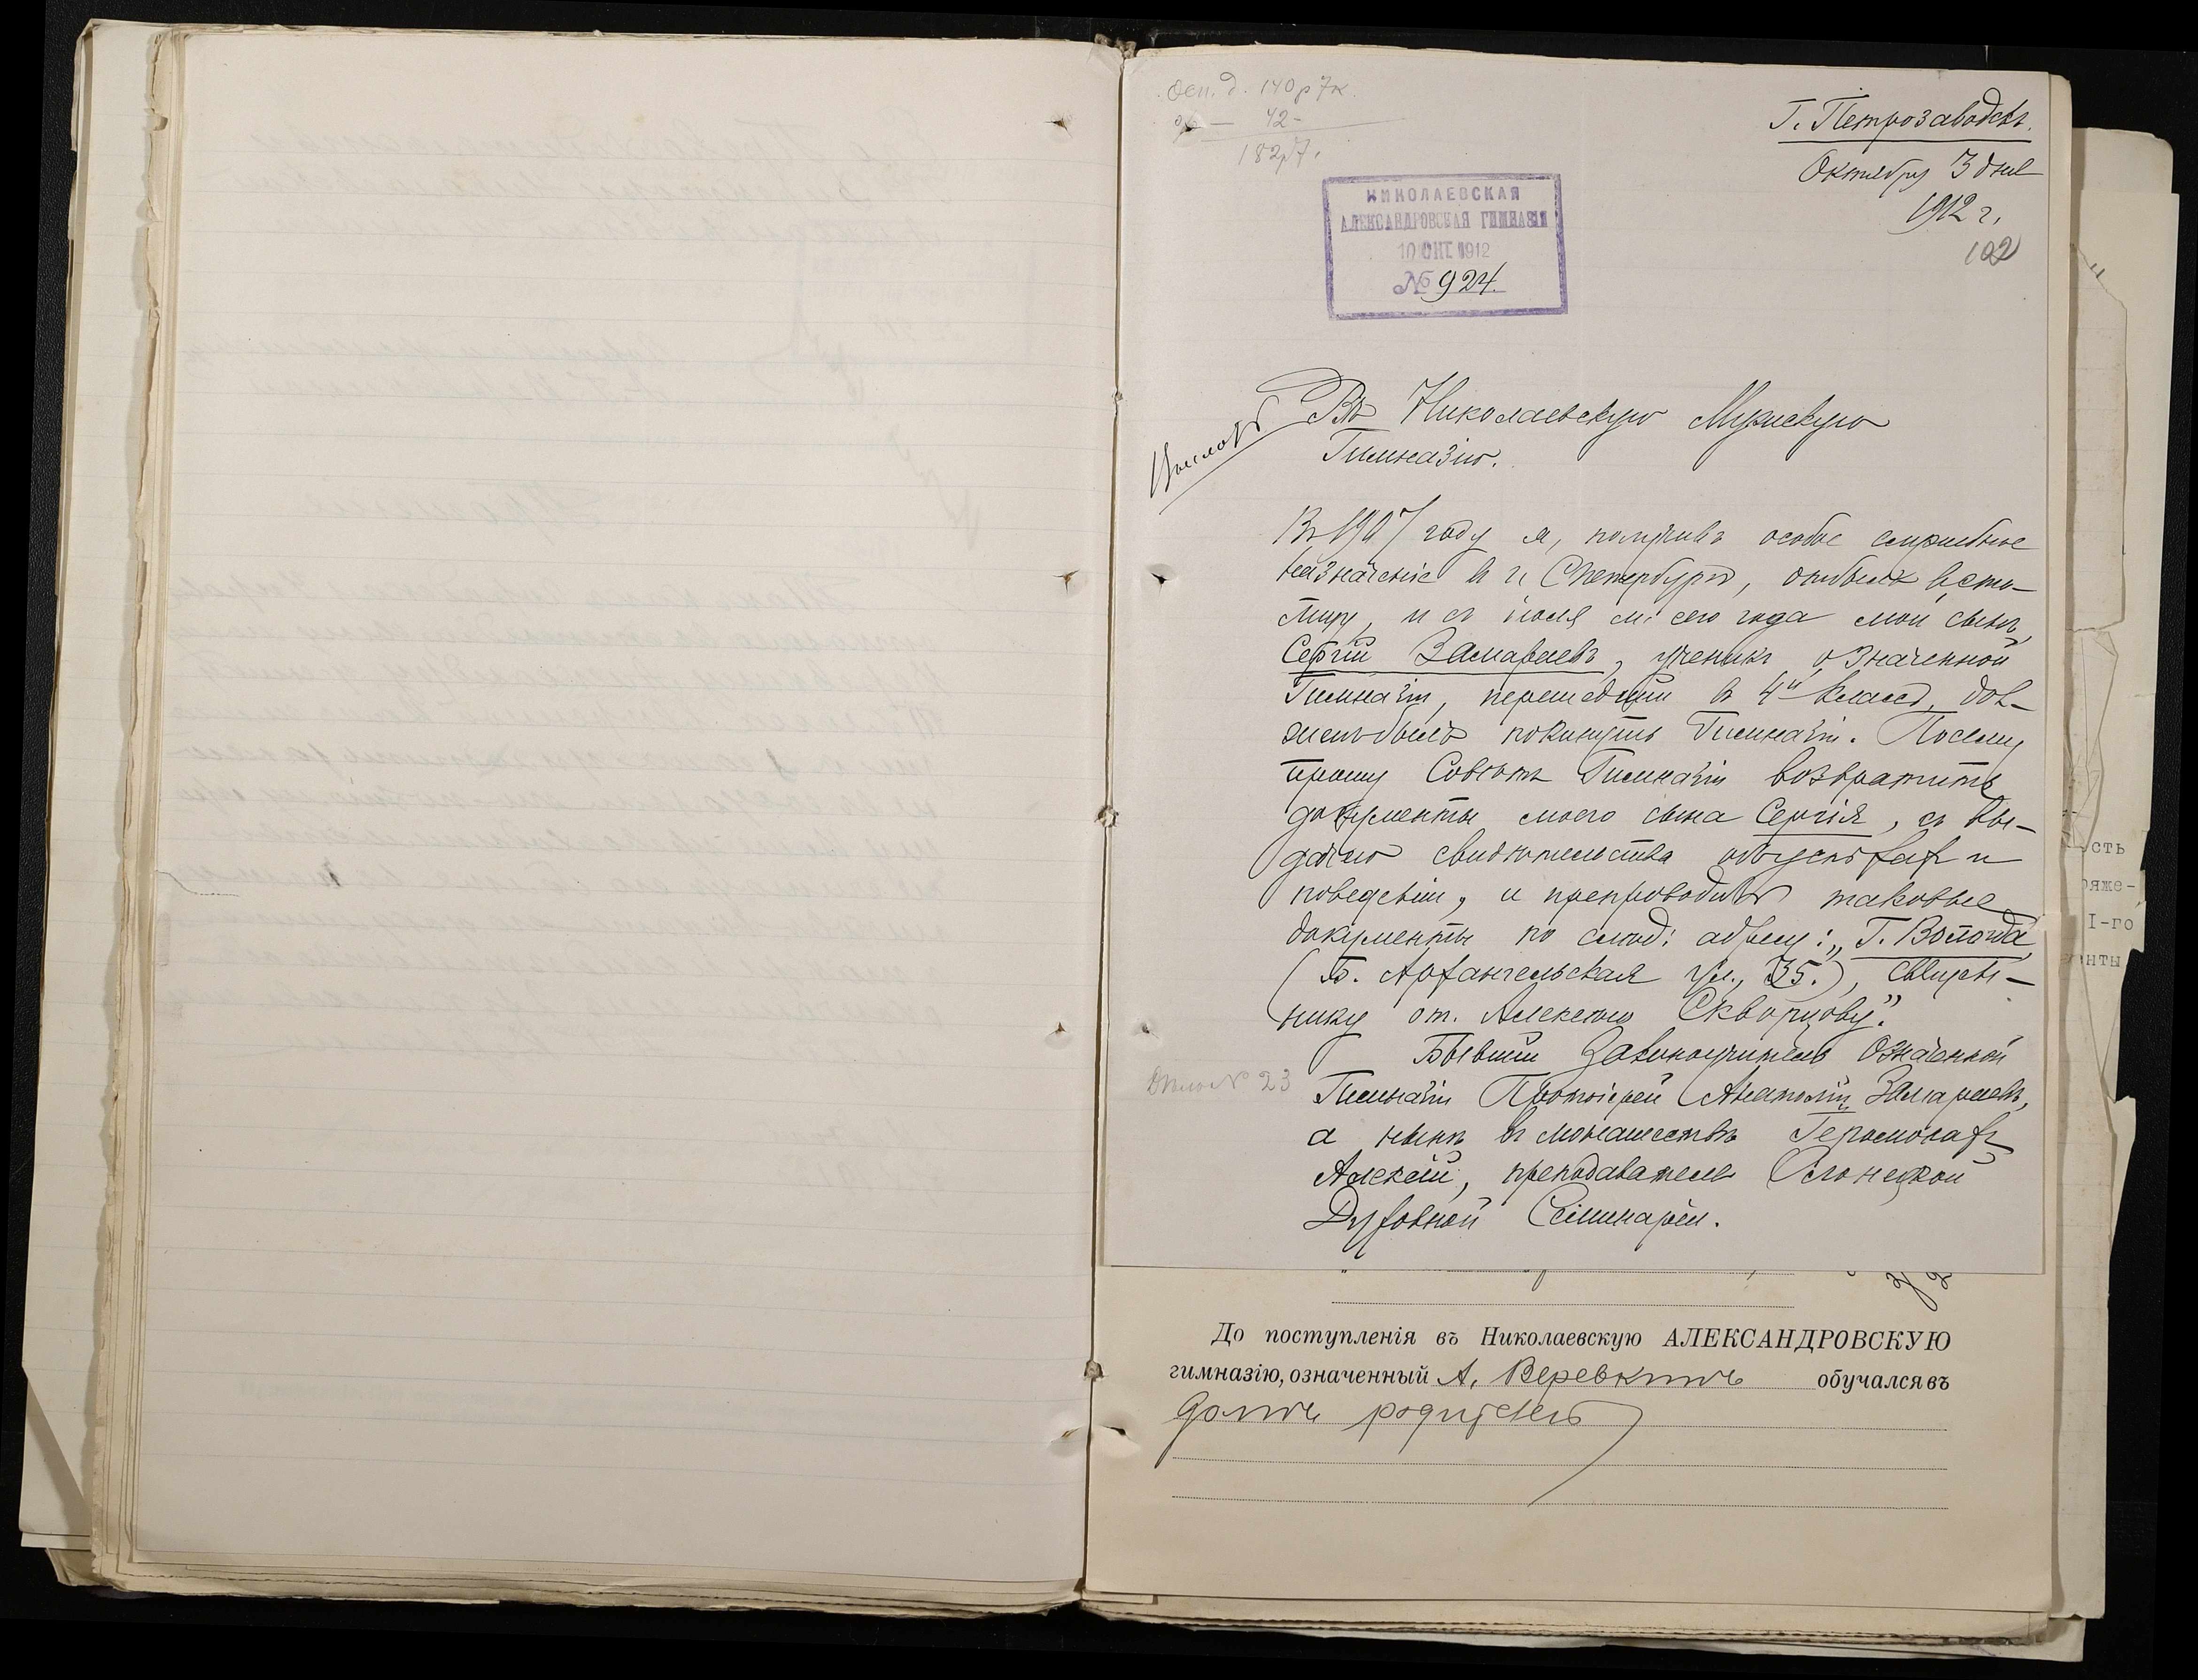 Осн. д. 140 р 7 к.
42 -
182 р 7.
Г. Петрозаводскъ.
Октября 3 дня
1912 г.
102
НИКОЛАЕВСКАЯ
АЛЕКСАНДРОВСКАЯ ГИМНАЗІЯ
10 ОКТ. 1912
№ 924.
Въ Николаевскую Мужскую
Гимназію.
Въ 1907 году я, получивъ особое служебное
назначеніе въ г. СПетербургъ,
и съ іюля м: сего года мой сынъ,
Сергій Замараевъ, ученикъ означенной
Гимназіи, перешедшій въ 4й классъ, дол-
женъ былъ покинуть Гимназію. Посему
прошу Совѣтъ Гимназіи возвратить
документы моего сына Сергія, съ вы-
дачею свидѣтельства объ успѣхахъ и
поведеніи, и препроводить таковые
документы по слѣд: адресу: „Г. Вологда
(Б. Архангельская ул., 35.), священ-
нику от. Алексѣю Скворцову."
Бывшій Законоучитель означенной
Гимназіи Протоіерей Анатолій Замараевъ,
а нынѣ въ монашествѣ Іеромонахъ
Алексій, преподаватель Олонецкой
Духовной Семинаріи.
Дѣло № 23
До поступленія въ Николаевскую АЛЕКСАНДРОВСКУЮ
гимназію, означенный А. Веревкинъ обучался въ
домѣ родителей
сть
ряже-
I-го
нты